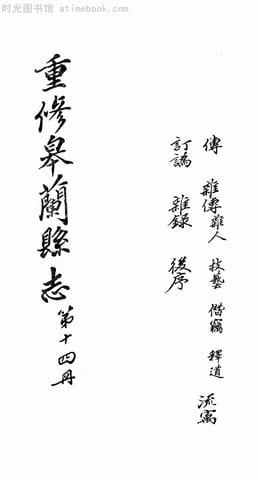 时光图书馆 atimebook.com
傳 雜傳雜人 技藝 僭竊 釋道 流寓
訂譌 雜録 後序
重修皋蘭縣志 第十四冊